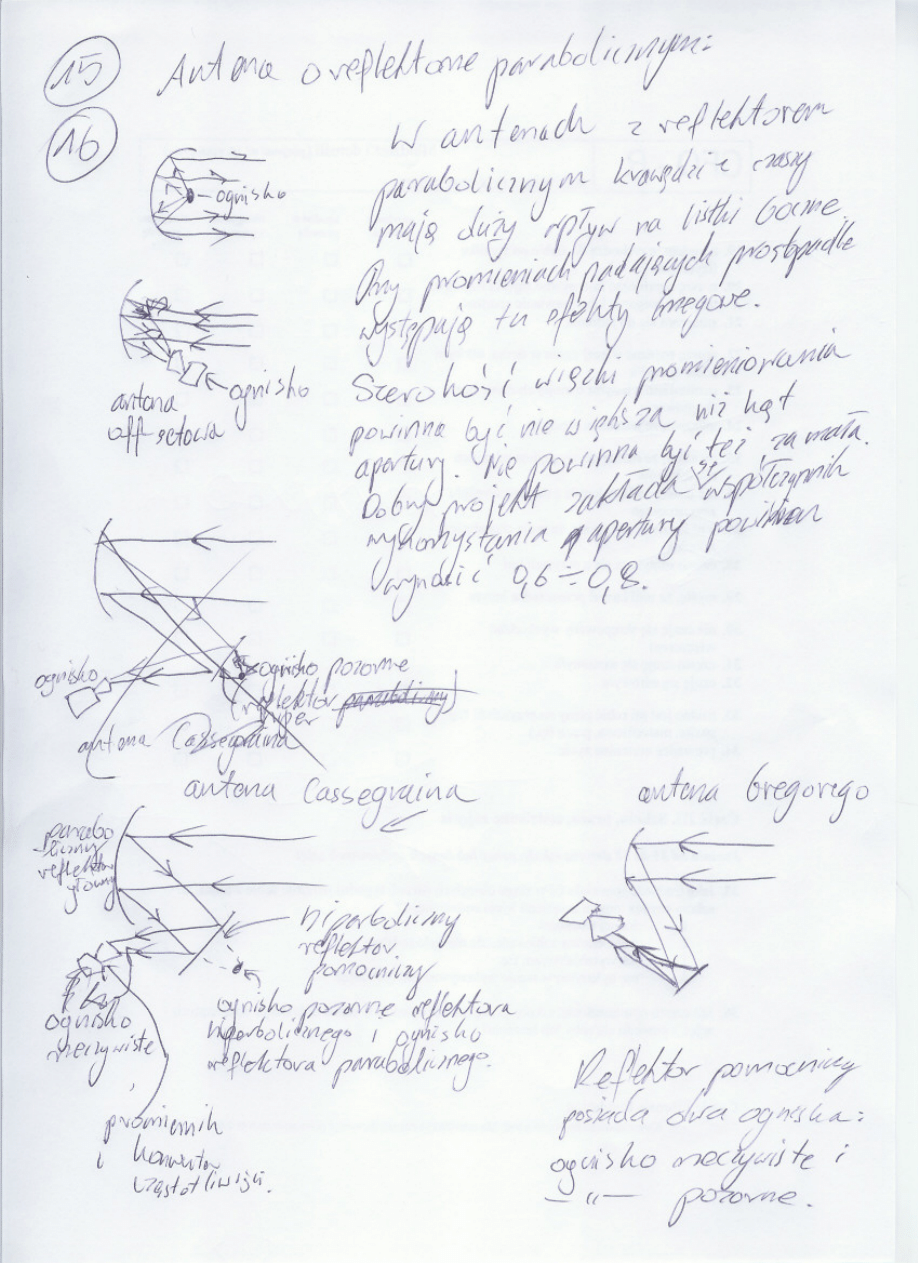 15 Antena o reflektorze parabolicznym:
16
W antenach z reflektorem
parabolicznym krawędzie czaszy
mają duży wpływ na listki boczne.
Przy promieniach padających prostopadle
występują tu efekty brzegowe.
Szerokość wiązki promieniowania
powinna być nie większa niż kąt
apertury. Nie powinna być też za mała.
Dobry projekt zakłada że współczynnik
wykorzystania apertury powinien
wynosić 0,6 ÷ 0,8.
ognisko
ognisko
antena
off-setowa
ognisko
ognisko pozorne
(reflektor paraboliczny)
hiper
antena Cassegraina
antena Cassegraina
parabo
-liczny
reflektor
główny
hiperboliczny
reflektor
pomocniczy
ognisko
rzeczywiste
ognisko pozorne reflektora
hiperbolicznego i ognisko
reflektora parabolicznego.
promiennik
i konwerter
częstotliwości.
antena Gregorego
Reflektor pomocniczy
posiada dwa ogniska:
ognisko rzeczywiste i
—„— pozorne.